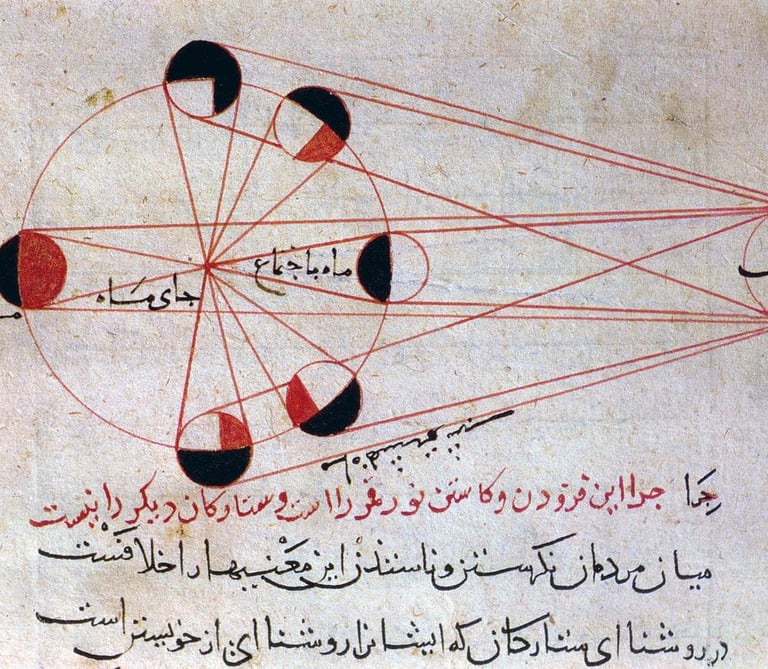 ماه باجتماع
جای ماه
جرا جرا این فزودن و کاستن نور قمر را است و ستارکان دیکر را نیست
میان مردمان نکرستن این معنیها را خلافست
در روشنا ای ستارکان که ایشانرا روشنا ای از خویشتن است